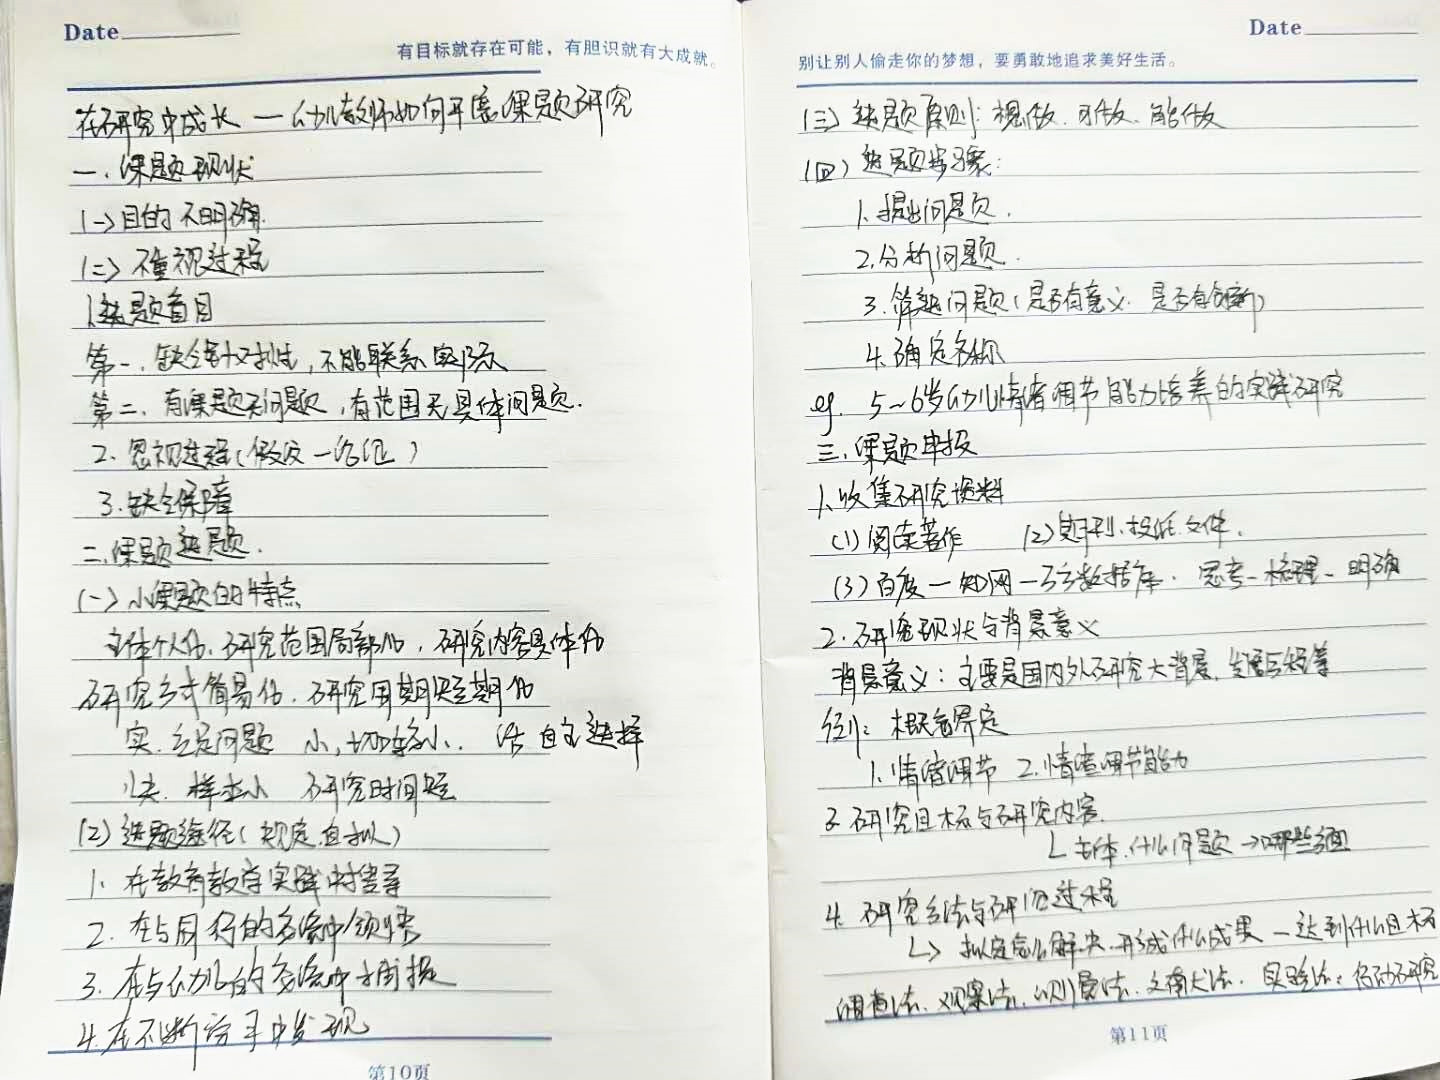 Date
有目标就存在可能，有胆识就有大成就。
在研究中成长 — 幼儿教师如何开展课题研究
一、课题现状
(一)目的不明确
(二)不重视过程
1.选题盲目
第一、缺乏针对性，不能联系实际
第二、有课题无问题，有范围无具体问题.
2. 忽视过程(假设—论证)
3.缺乏保障
二、课题选题.
(一)小课题的特点
主体个人化、研究范围局部化，研究内容具体化
研究方式简易化、研究周期短期化
实.立足问题 小，切口较小. 活 自主选择
快. 样本小 研究时间短
(2)选题途径(规定.自拟)
1. 在教育教学实践中找寻
2. 在与同行的交流中领悟
3. 在与幼儿的交流中捕捉
4.在不断学习中发现
第10页
Date
别让别人偷走你的梦想，要勇敢地追求美好生活。
(三)选题原则：想做、可做、能做
(四)选题步骤：
1.提出问题.
2.分析问题.
3.筛选问题(是否有意义.是否有创新)
4.确定名称
eg. 5~6岁幼儿情绪调节能力培养的实践研究
三.课题申报
1.收集研究资料
(1)阅读著作 (2)期刊、报纸.文件.
(3)百度—知网—万方数据库. 思考—梳理—明确
2.研究现状与背景意义
背景意义：主要是国内外研究大背景、发展历程等
例：概念界定
1.情绪调节 2.情绪调节能力
3.研究目标与研究内容.
主体.什么问题→哪些方面
4.研究方法与研究过程
↳ 拟定怎么解决.形成什么成果—达到什么目标
调查法、观察法、文献法、实验法、行动研究
第11页